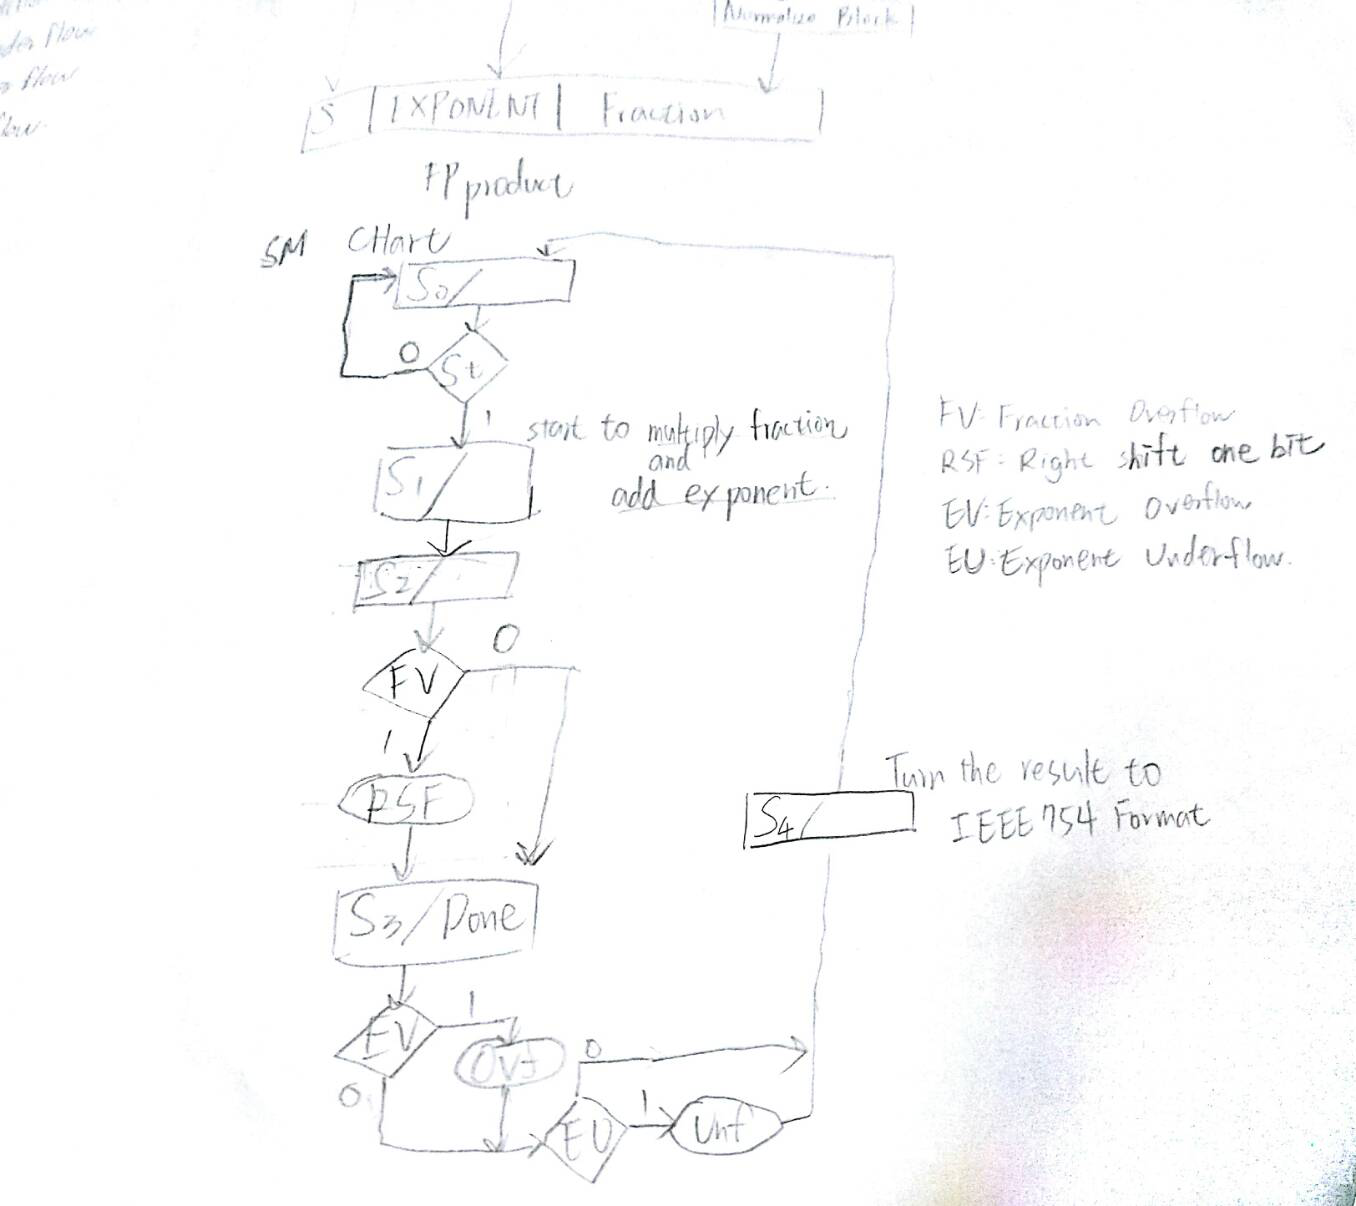 der flow
flow
low.
Normalize Block
S | EXPONENT | Fraction
FP product
SM CHart
S0/
0
St
1
start to multiply fraction
and
add exponent.
S1/
S2/
0
FV
1
RSF
S3/Done
EV
1
0
Ovf
0
EU
1
Unf
S4/
Turn the result to
IEEE 754 Format
FV: Fraction Overflow
RSF: Right shift one bit
EV: Exponent Overflow
EU: Exponent Underflow.